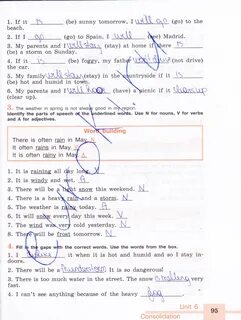 1. If it is (be) sunny tomorrow, I will go (go) to the
beach.
2. If I go (go) to Spain, I will (see) Madrid.
3. My parents and I will stay (stay) at home if there is
(be) a storm on Sunday.
4. If it is (be) foggy, my father (not drive)
the car.
5. My family will stay (stay) in the countryside if it is
(be) hot and humid.
6. My parents and I will have (have) a picnic if it clears up
(clear up).
3. The weather in spring is not always good in my region.
Identify the parts of speech of the underlined words. Use N for nouns, V for verbs
and A for adjectives.
Word building
There is often rain in May. N
It often rains in May. V
It is often rainy in May. A
1. It is raining all day long. V
2. It is windy and wet. A
3. There will be a light snow this weekend. N
4. There is a heavy rain and a storm. N
5. The weather is rainy today. A
6. It will snow every day this week. V
7. The wind was very cold yesterday. N
8. There will be frost tomorrow. N
4. Fill in the gaps with the correct words. Use the Vocabulary.
1. I when it is hot and humid and so I stay in-
doors.
2. There will be a thunderstorm. It is so dangerous!
3. There is too much water in the street. The snow is melting very
fast.
4. I can't see anything because of the heavy fog
Unit 6
Consolidation
95